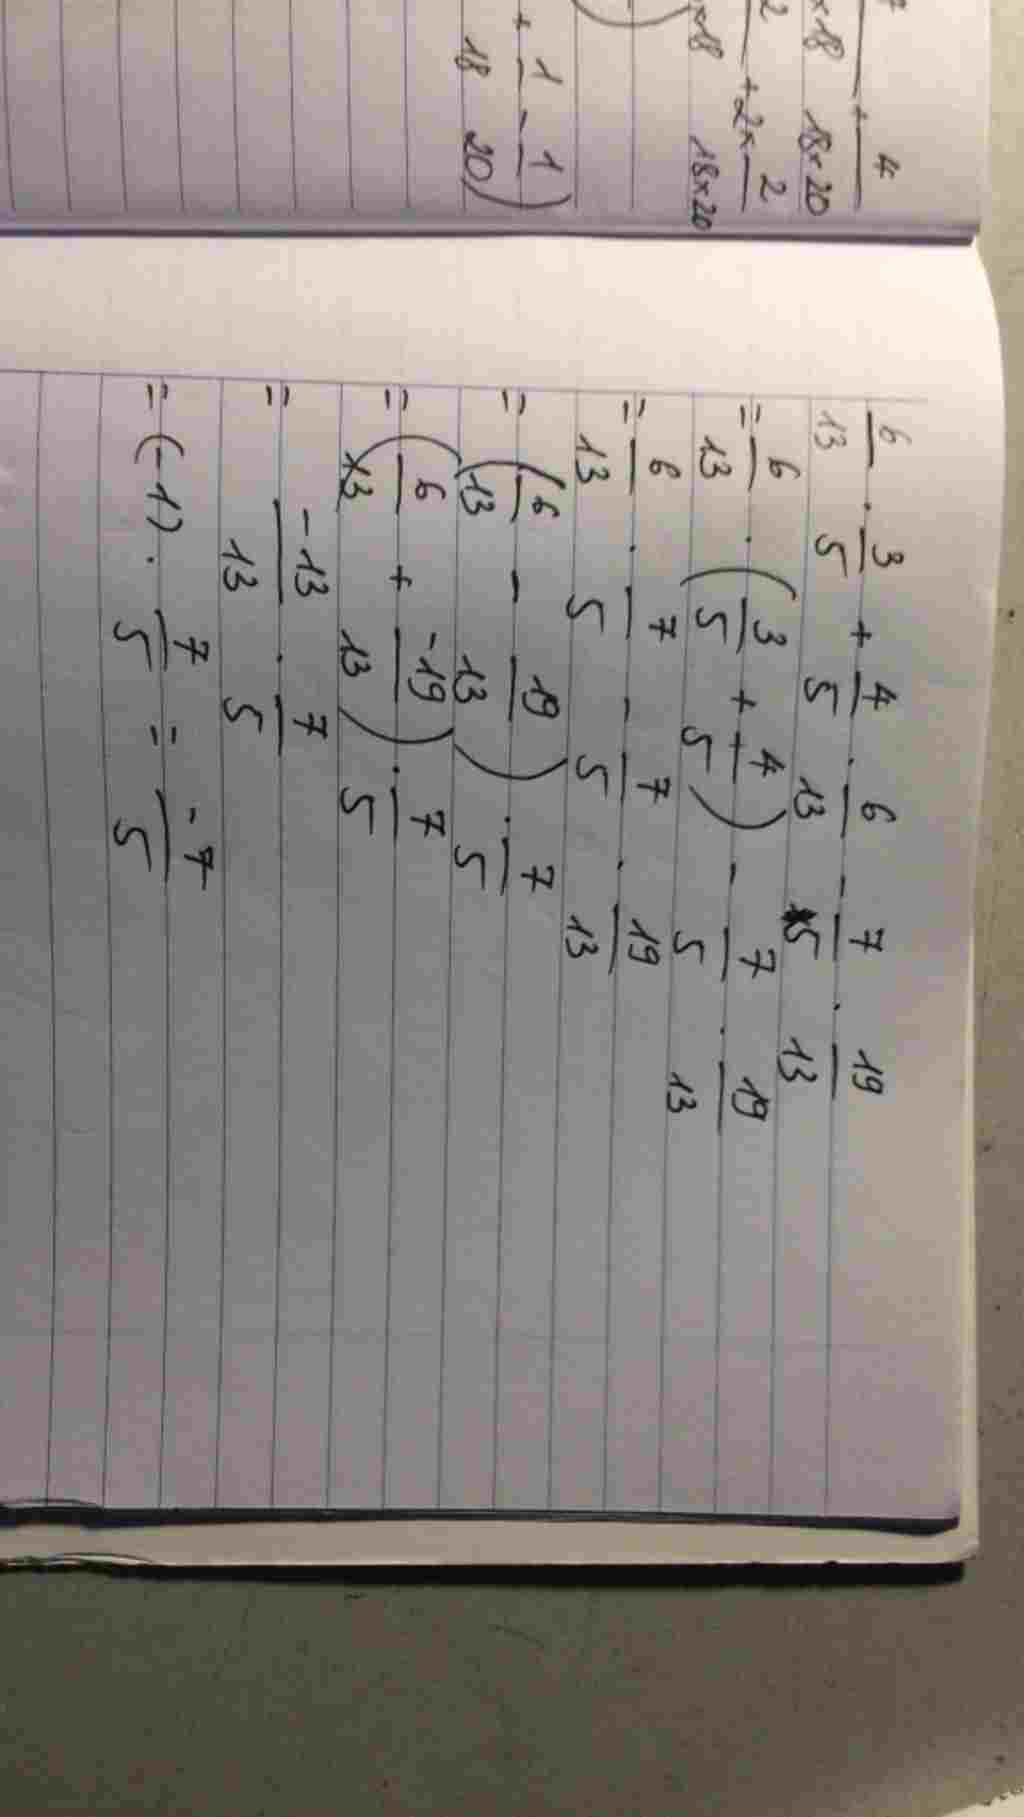 6/13 . 3/5 + 4/5 . 6/13 - 7/5 . 19/13
= 6/13 . (3/5 + 4/5) - 7/5 . 19/13
= 6/13 . 7/5 - 7/5 . 19/13
= (6/13 - 19/13) . 7/5
= (6/13 + -19/13) . 7/5
= -13/13 . 7/5
= (-1) . 7/5 = -7/5
+ 4/18×20
+ 2 × 2/18×20
+ 1/18 - 1/20)